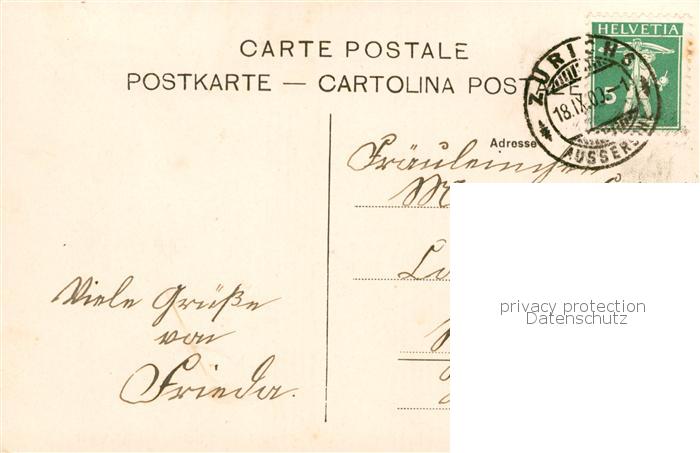 CARTE POSTALE
POSTKARTE — CARTOLINA POSTALE
HELVETIA
5
ZÜRICH 9
18.IX.09.-1
AUSSERSIHL
Adresse
Fräuleinchen
Viele Grüße
von
Frieda.
privacy protection
Datenschutz